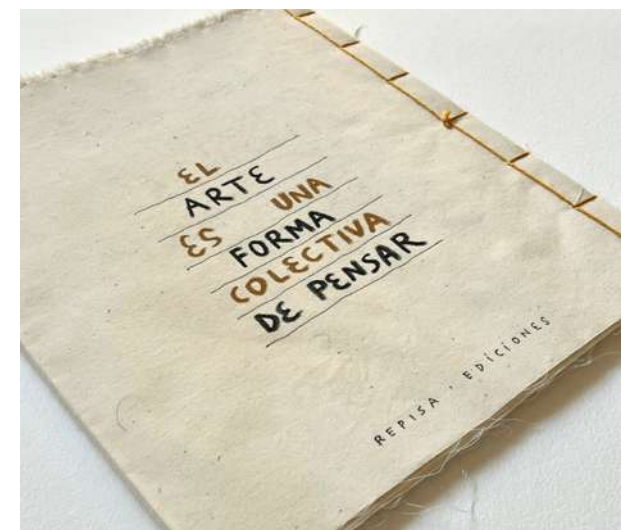 EL
ARTE
ES UNA
FORMA
COLECTIVA
DE PENSAR
REPISA · EDICIONES